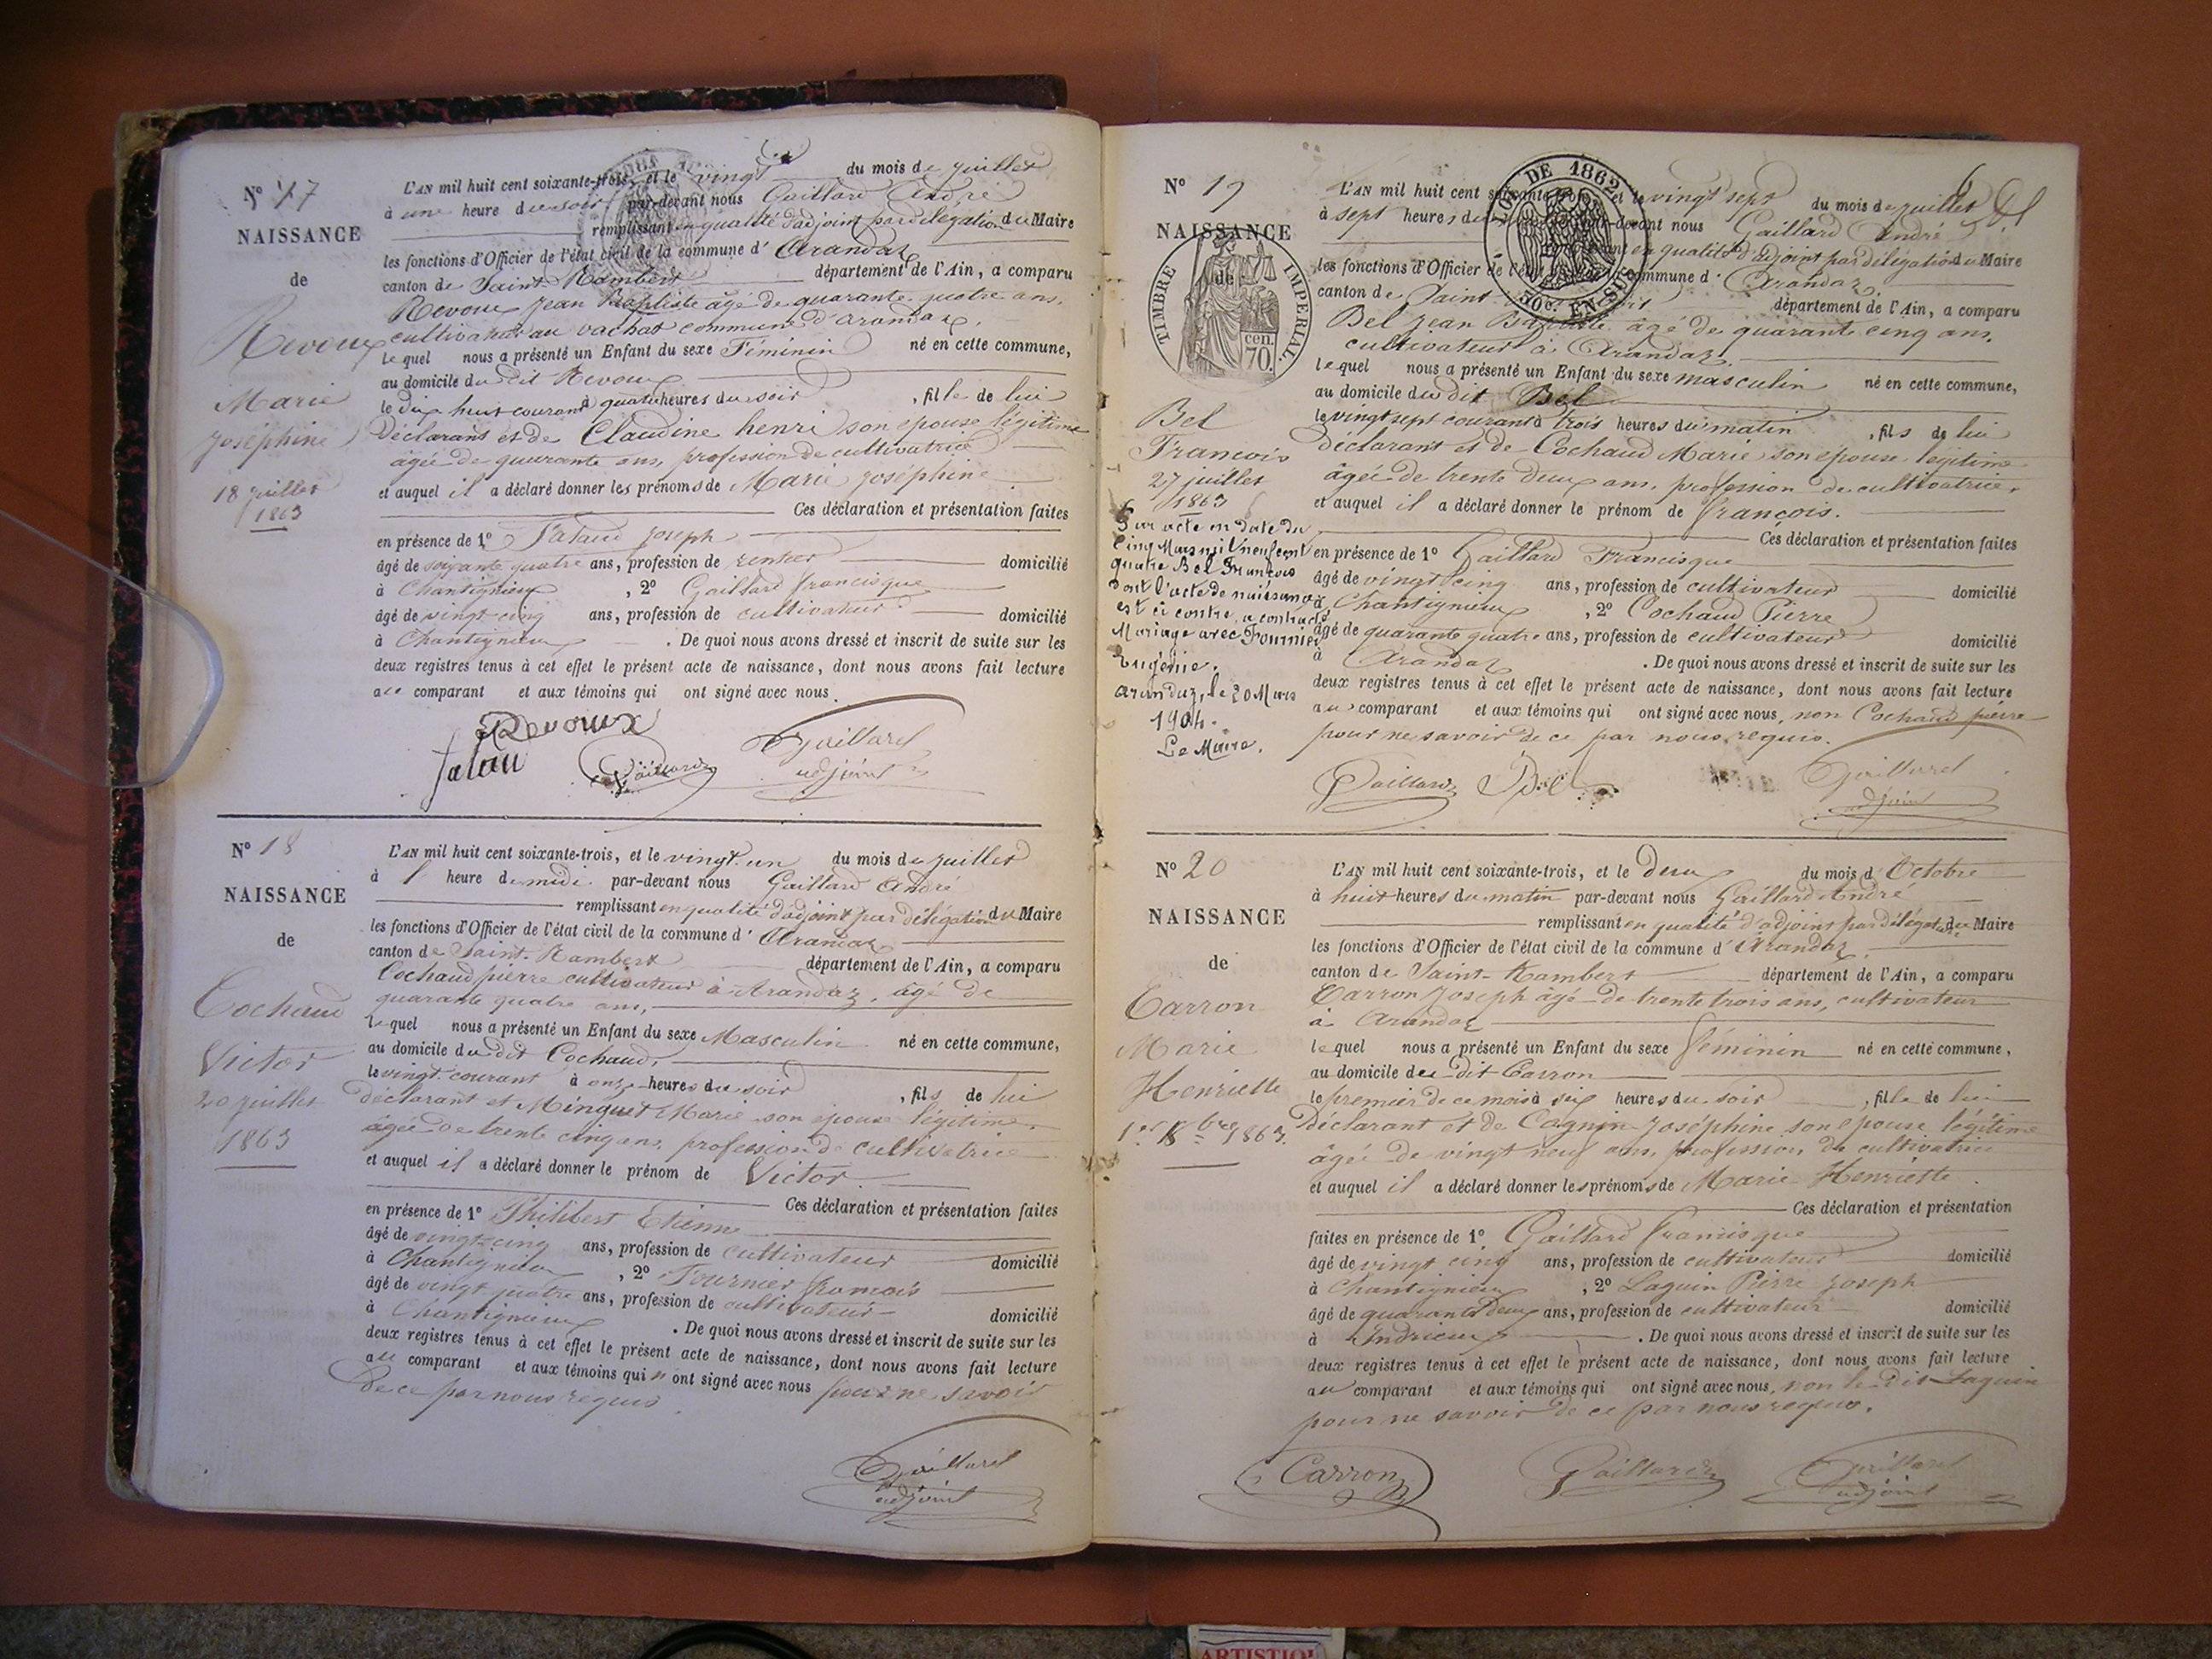 N° 17
NAISSANCE
de
Revoux
Marie
Joséphine
18 juillet
1863
L'AN mil huit cent soixante-trois, et le vingt du mois de juillet
à une heure du soir par-devant nous Gaillard André
remplissant en qualité d'adjoint par délégation du Maire
les fonctions d'Officier de l'état civil de la commune d' Arandaz
canton de Saint Rambert département de l'Ain, a comparu
Revoux Jean Baptiste âgé de quarante quatre ans,
cultivateur au vachat commune d'arandaz.
Lequel nous a présenté un Enfant du sexe Féminin né en cette commune,
au domicile du dit Revoux
le dix huit courant à quatre heures du soir , fille de lui
Déclarant et de Claudine henri son épouse légitime
âgée de quarante ans, profession de cultivatrice
et auquel il a déclaré donner les prénoms de Marie Joséphine
Ces déclaration et présentation faites
en présence de 1° Falaud Joseph
âgé de soixante quatre ans, profession de rentier domicilié
à Chantignieux , 2° Gaillard francisque
âgé de vingt cinq ans, profession de cultivateur domicilié
à Chantignieux . De quoi nous avons dressé et inscrit de suite sur les
deux registres tenus à cet effet le présent acte de naissance, dont nous avons fait lecture
au comparant et aux témoins qui ont signé avec nous.
Revoux
falau Gaillard Gaillard
adjoint
N° 18
NAISSANCE
de
Cochaud
Victor
20 juillet
1863
L'AN mil huit cent soixante-trois, et le vingt un du mois de juillet
à 1 heure de midi par-devant nous Gaillard André
remplissant en qualité d'adjoint par délégation du Maire
les fonctions d'Officier de l'état civil de la commune d' Arandaz
canton de Saint-Rambert département de l'Ain, a comparu
Cochaud pierre cultivateur à Arandaz, âgé de
quarante quatre ans,
Lequel nous a présenté un Enfant du sexe Masculin né en cette commune,
au domicile du dit Cochaud,
le vingt courant à onze heures du soir , fils de lui
déclarant et Minguet Marie son épouse légitime
âgée de trente cinq ans, profession de cultivatrice
et auquel il a déclaré donner le prénom de Victor
Ces déclaration et présentation faites
en présence de 1° Philibert Etienne
âgé de vingt-cinq ans, profession de cultivateur domicilié
à Chantignieux , 2° Fournier françois
âgé de vingt quatre ans, profession de cultivateur domicilié
à Chantignieux . De quoi nous avons dressé et inscrit de suite sur les
deux registres tenus à cet effet le présent acte de naissance, dont nous avons fait lecture
au comparant et aux témoins qui n ont signé avec nous pour ne savoir
de ce par nous requis
Gaillard
adjoint
N° 19
NAISSANCE
de
TIMBRE IMPERIAL.
cen. 70.
Bel
François
27 juillet
1863
Sur acte en date du
Cinq Mars mil neuf cent
quatre Bel François
dont l'acte de naissance
est ci contre, a contracté
Mariage avec Fournier
Eugénie.
Arandaz, le 20 Mars
1904.
Le Maire.
DE 1862
50c. EN SUS
L'AN mil huit cent soixante-trois, et le vingt sept du mois de juillet
à sept heures du par-devant nous Gaillard André
remplissant en qualité d'adjoint par délégation du Maire
les fonctions d'Officier de l'état civil de la commune d' Arandaz
canton de Saint-Rambert département de l'Ain, a comparu
Bel Jean Baptiste âgé de quarante cinq ans,
cultivateur à Arandaz.
lequel nous a présenté un Enfant du sexe masculin né en cette commune,
au domicile du dit Bel
le vingt sept courant à trois heures du matin , fils de lui
déclarant et de Cochaud Marie son épouse légitime
âgée de trente deux ans, profession de cultivatrice,
et auquel il a déclaré donner le prénom de françois.
Ces déclaration et présentation faites
en présence de 1° Gaillard Francisque
âgé de vingt cinq ans, profession de cultivateur domicilié
à Chantignieux , 2° Cochaud Pierre
âgé de quarante quatre ans, profession de cultivateur domicilié
à Arandaz . De quoi nous avons dressé et inscrit de suite sur les
deux registres tenus à cet effet le présent acte de naissance, dont nous avons fait lecture
au comparant et aux témoins qui ont signé avec nous, non Cochaud pierre
pour ne savoir de ce par nous requis.
Gaillard Bel Gaillard
adjoint
N° 20
NAISSANCE
de
Carron
Marie
Henriette
1er 8bre 1863.
L'AN mil huit cent soixante-trois, et le deux du mois d' Octobre
à huit heures du matin par-devant nous Gaillard André
remplissant en qualité d'adjoint par délégation du Maire
les fonctions d'Officier de l'état civil de la commune d' Arandaz
canton de Saint-Rambert département de l'Ain, a comparu
Carron Joseph âgé de trente trois ans, cultivateur
à Arandaz
lequel nous a présenté un Enfant du sexe féminin né en cette commune,
au domicile du dit Carron
le premier de ce mois à six heures du soir , fille de lui
déclarant et de Cagnin Joséphine son épouse légitime
âgée de vingt neuf ans, profession de cultivatrice
et auquel il a déclaré donner les prénoms de Marie Henriette.
Ces déclaration et présentation
faites en présence de 1° Gaillard francisque
âgé de vingt cinq ans, profession de cultivateur domicilié
à Chantignieux , 2° Laguin Pierre Joseph
âgé de quarante deux ans, profession de cultivateur domicilié
à Indrieux . De quoi nous avons dressé et inscrit de suite sur les
deux registres tenus à cet effet le présent acte de naissance, dont nous avons fait lecture
au comparant et aux témoins qui ont signé avec nous, non le dit Laguin
pour ne savoir de ce par nous requis.
Carron Gaillard Gaillard
adjoint